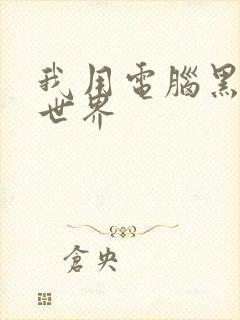 我用電腦黑
世界
倉央